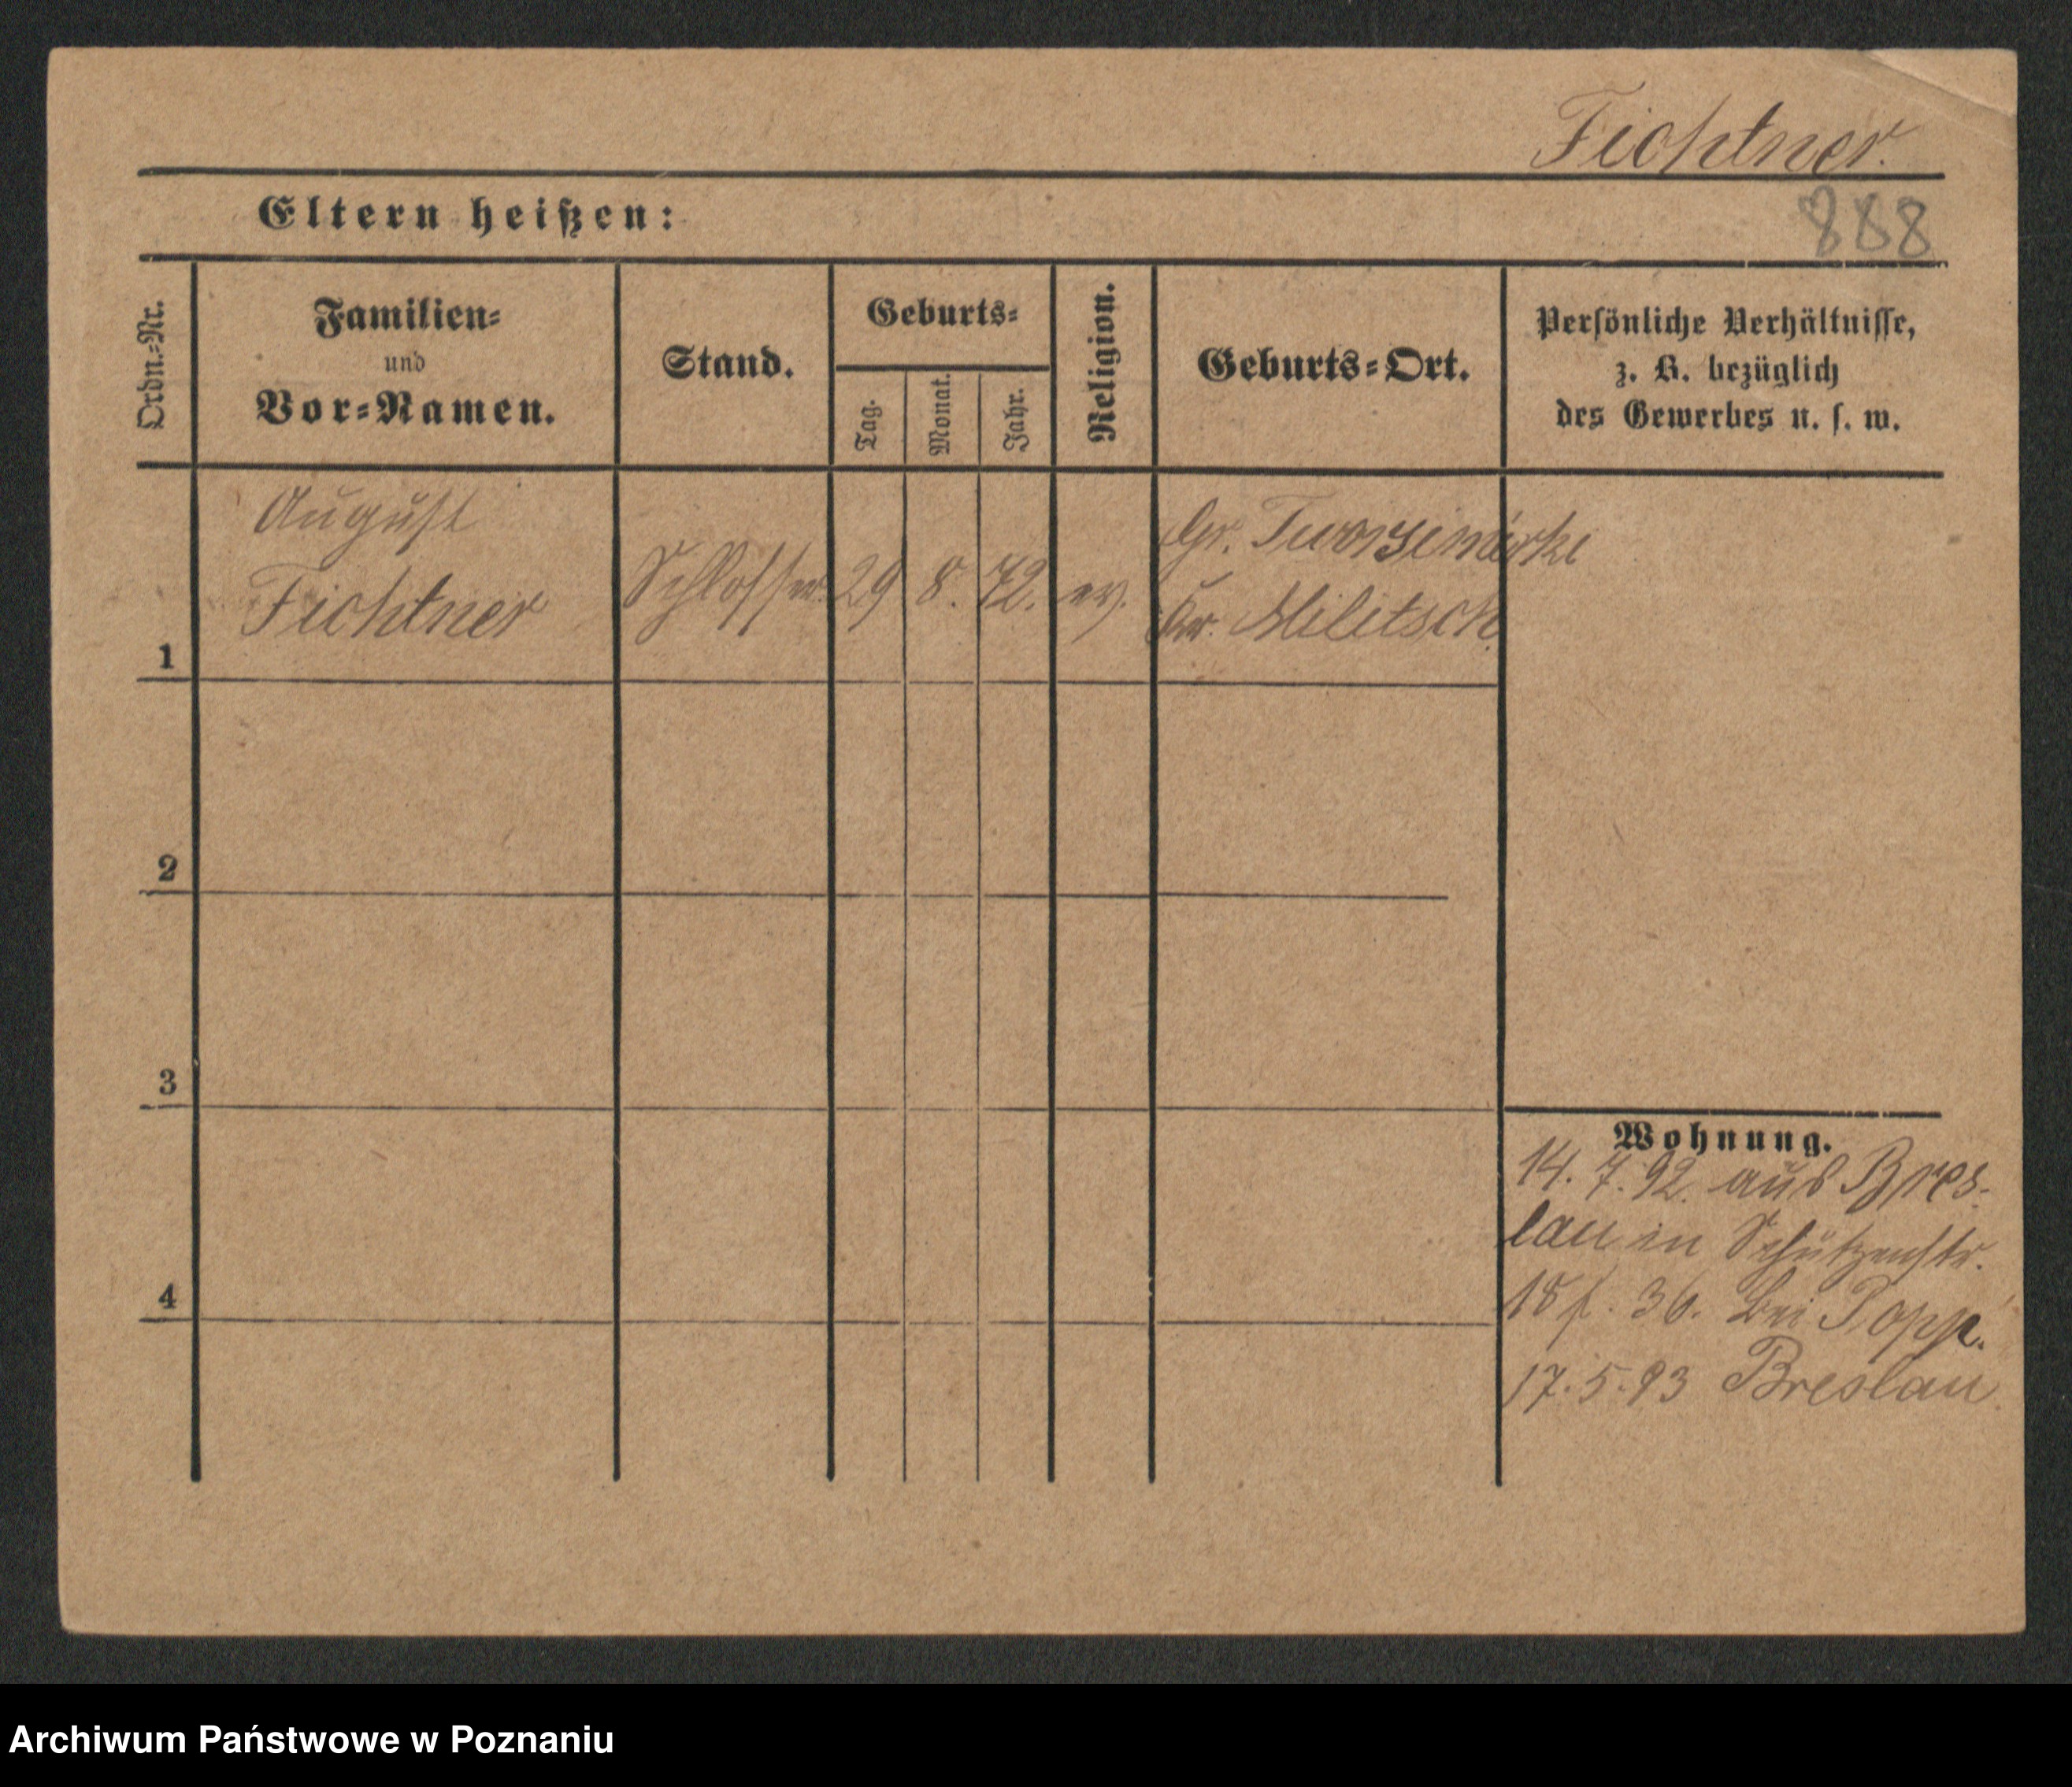 Fichtner.
Eltern heißen:
888
Ordn.=Nr.
Familien=
und
Vor=Namen.
Stand.
Geburts=
Tag.
Monat.
Jahr.
Religion.
Geburts=Ort.
Persönliche Verhältnisse,
z. B. bezüglich
des Gewerbes u. s. w.
August
Fichtner
Schlosser
29
8.
72.
ev.
Gr. 
Kr. Militsch.
1
2
3
4
Wohnung.
14. 7. 92. aus Bres-
lau in Schützenstr.
18 36. bei Popp.
17. 5. 93 Breslau
Archiwum Państwowe w Poznaniu